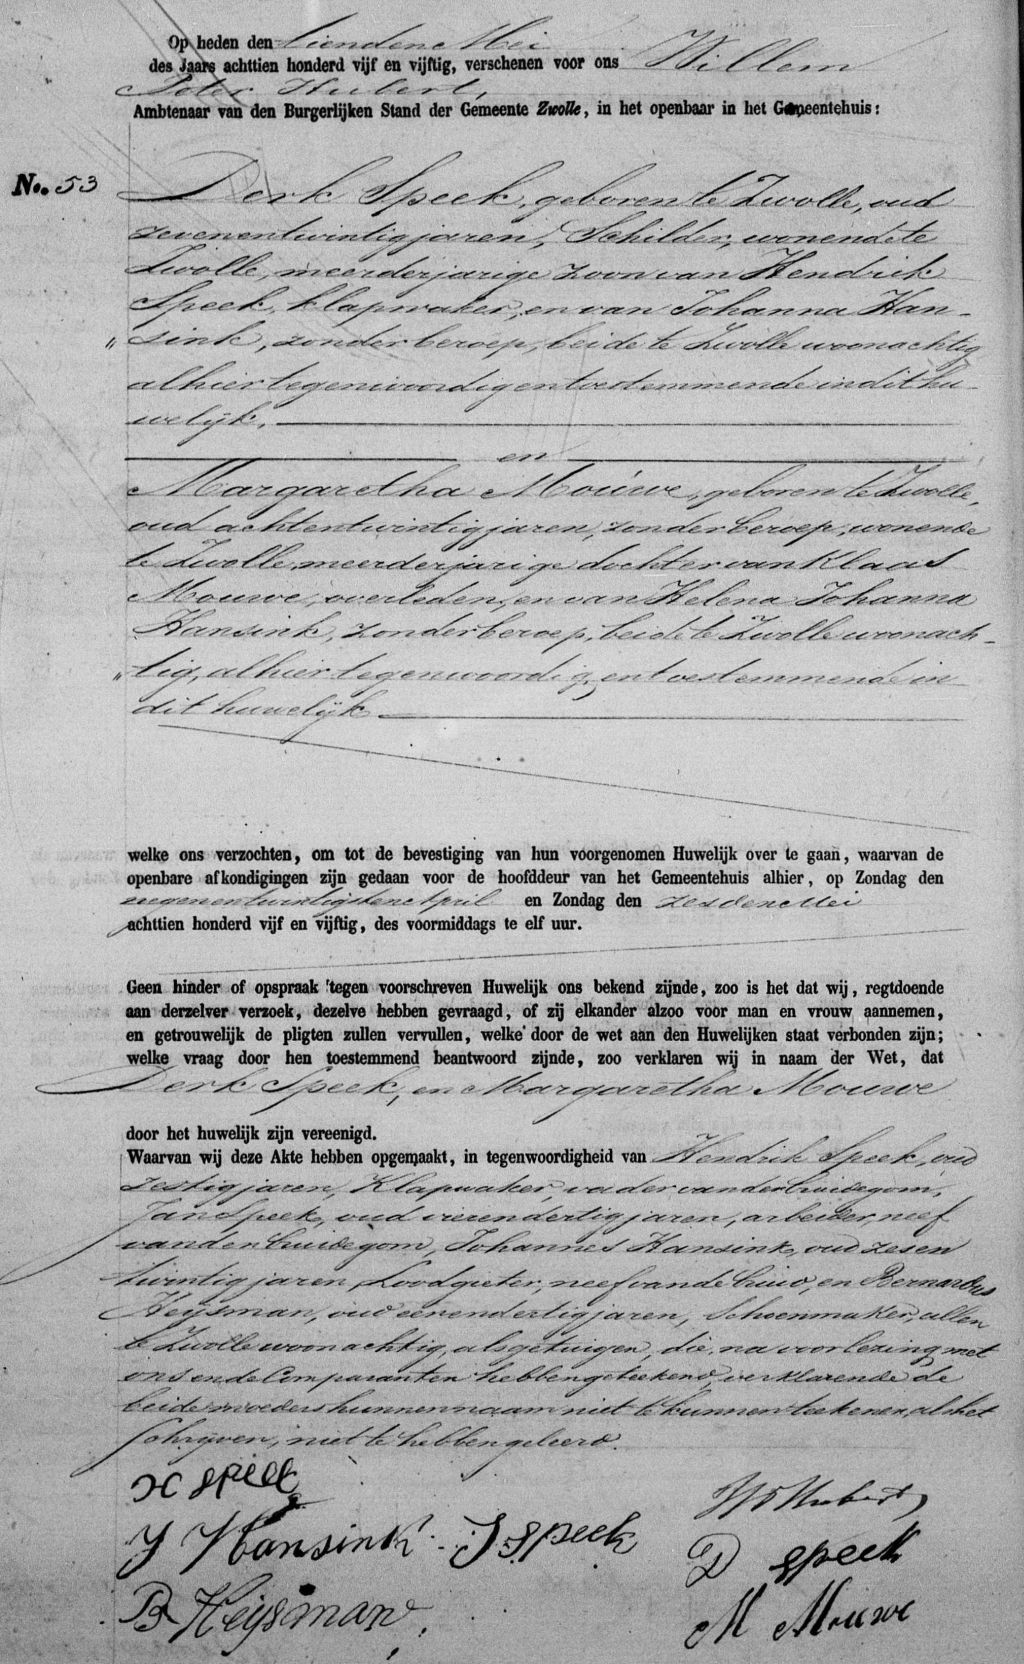 Op heden den tienden Mei
des Jaars achttien honderd vijf en vijftig, verschenen voor ons Willem
Peter Hubert,
Ambtenaar van den Burgerlijken Stand der Gemeente Zwolle, in het openbaar in het Gemeentehuis:
No. 53
Derk Speek, geboren te Zwolle, oud
zevenentwintig jaren, Schilder, wonende te
Zwolle, meerderjarige zoon van Hendrik
Speek, klapwaker, en van Johanna Han-
„ sink, zonder beroep, beide te Zwolle woonachtig
alhier tegenwoordig en toestemmende in dit hu-
welijk.
en
Margaretha Mouwe, geboren te Zwolle,
oud achtentwintig jaren, zonder beroep, wonende
te Zwolle, meerderjarige dochter van Klaas
Mouwe, overleden, en van Helena Johanna
Hansink, zonder beroep, beide te Zwolle woonach-
„ tig, alhier tegenwoordig, en toestemmende in
dit huwelijk
welke ons verzochten, om tot de bevestiging van hun voorgenomen Huwelijk over te gaan, waarvan de
openbare afkondigingen zijn gedaan voor de hoofddeur van het Gemeentehuis alhier, op Zondag den
negenentwintigsten April en Zondag den zesden Mei
achttien honderd vijf en vijftig, des voormiddags te elf uur.
Geen hinder of opspraak tegen voorschreven Huwelijk ons bekend zijnde, zoo is het dat wij, regtdoende
aan derzelver verzoek, dezelve hebben gevraagd, of zij elkander alzoo voor man en vrouw aannemen,
en getrouwelijk de pligten zullen vervullen, welke door de wet aan den Huwelijken staat verbonden zijn;
welke vraag door hen toestemmend beantwoord zijnde, zoo verklaren wij in naam der Wet, dat
Derk Speek, en Margaretha Mouwe
door het huwelijk zijn vereenigd.
Waarvan wij deze Akte hebben opgemaakt, in tegenwoordigheid van Hendrik Speek, oud
zestig jaren, Klapwaker, vader van den bruidegom,
Jan Speek, oud vierendertig jaren, arbeider, neef
van den bruidegom, Johannes Hansink, oud zesen
twintig jaren, Loodgieter, neef van de bruid, en Bernardus
Heijsman, oud eenendertig jaren, Schoenmaker, allen
te Zwolle woonachtig, als getuigen, die, na voorlezing, met
ons en de Comparanten hebben geteekend, verklarende de
beide moeders hunnen naam niet te kunnen teekenen, als het
schrijven, niet te hebben geleerd.
H Speek
WP Hubert
J Hansink J Speek
D Speek
B Heijsman
M Mouwe